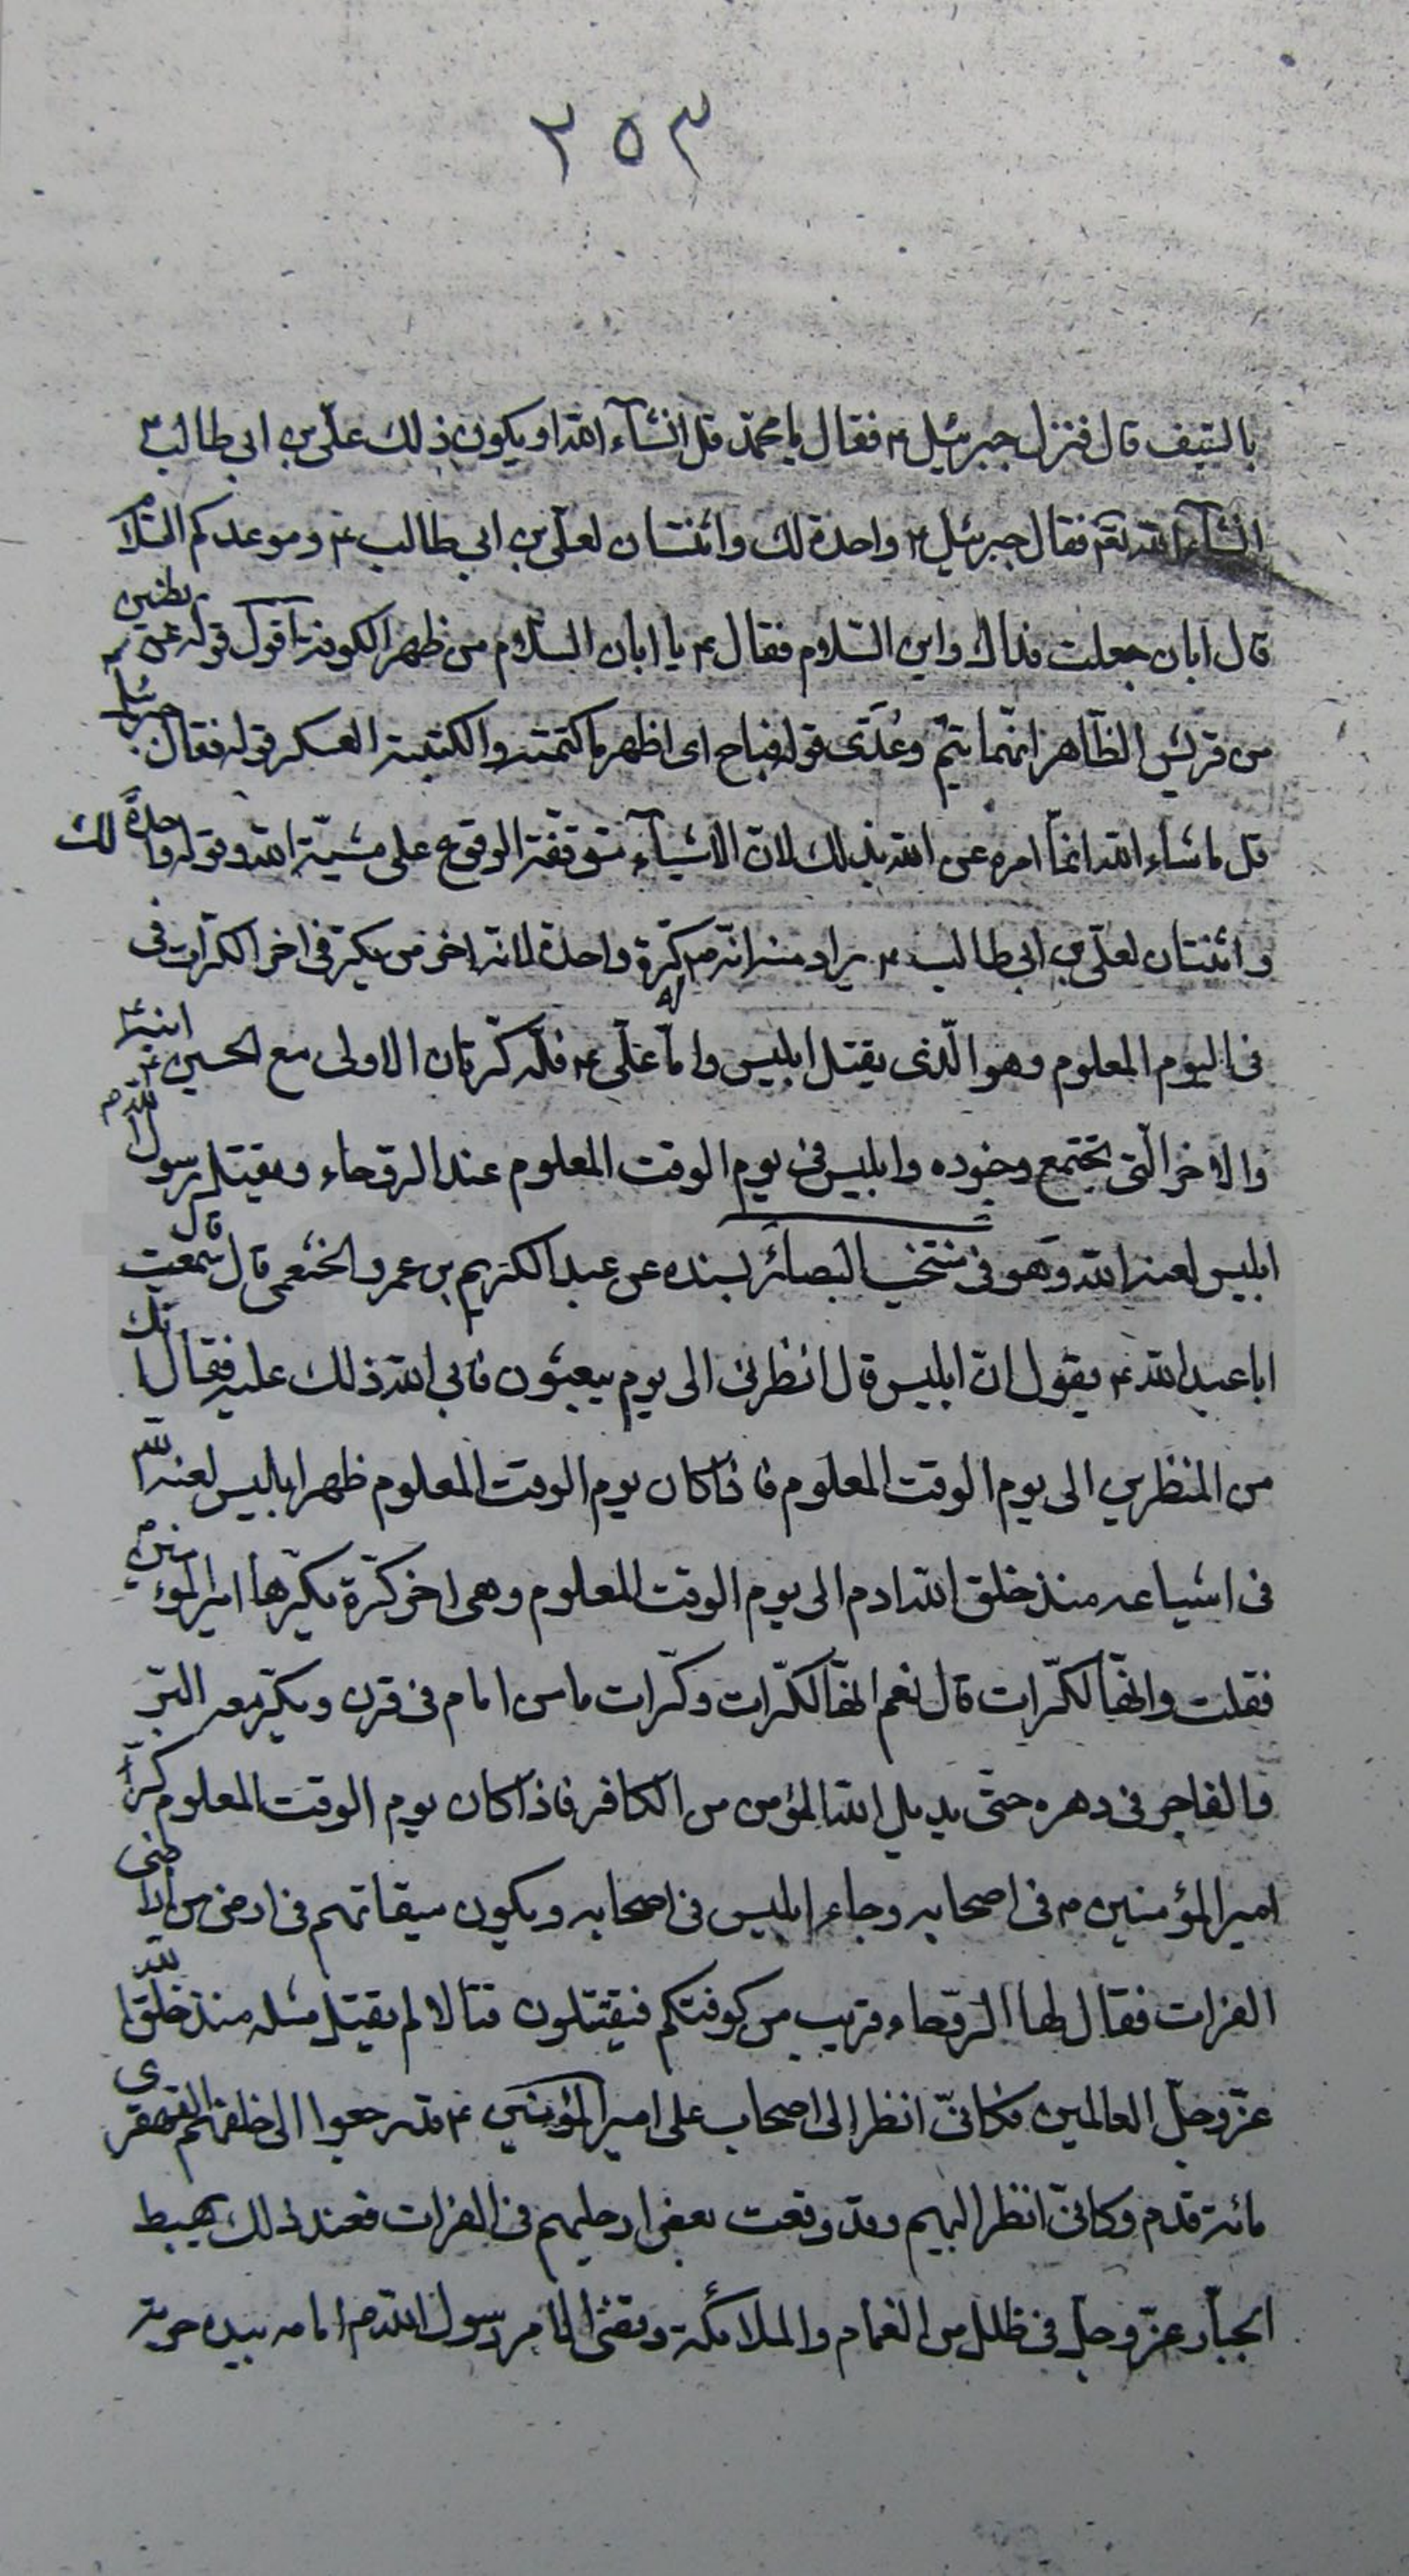 ٢٥٣
بالسّيف قال فنزل جبرئيل ع فقال يا محمّد قل انشآء الله او يكون ذلك علىّ بن ابى طالب ع
انشآء الله تعالى فقال جبرئيل ع واحدة لك واثنتان لعلىّ بن ابى طالب ع وموعدكم السّلام
قال ابان جعلت فداك واين السّلام فقال ع يا ابان السّلام من ظهر الكوفة اقول قوله عن بطنين
من قريش الظّاهر انّهما تيم وعدىّ قوله فباح اى اظهر ما كتمته والكتيبة العسكر قوله فقال جبرئيل
قل ما شاء الله انّما امره عن الله بذلك لانّ الاشيآء متوقّفة الوقوع على مشيّة الله وقوله واحدة لك
واثنتان لعلىّ بن ابى طالب ع يراد منه انّه ص له كرّة واحدة لانّه اخر من يكرّ فى اخر الكرّات فى
فى اليوم المعلوم وهو الّذى يقتل ابليس وامّا علىّ ع فله كرّتان الاولى مع الحسين ع ابنه
والاخر الّتى تجتمع وجنوده وابليس فى يوم الوقت المعلوم عند الروحاء ويقتل رسول الله ص
ابليس لعنه الله وهو فى منتخب البصائر بسنده عن عبد الكريم بن عمرو الخثعمى قال سمعت
ابا عبد الله ع يقول انّ ابليس قال انظرنى الى يوم يبعثون فابى الله ذلك عليه فقال انّك
من المنظرين الى يوم الوقت المعلوم فاذا كان يوم الوقت المعلوم ظهر ابليس لعنه الله
فى اشياعه منذ خلق الله ادم الى يوم الوقت المعلوم وهى اخر كرّة يكرّها امير المؤمنين
فقلت وانّها لكرّات قال نعم انّها لكرّات وكرّات ما من امام فى قرن ويكرّ معه البرّ
والفاجر فى دهره حتّى يديل الله المؤمن من الكافر فاذا كان يوم الوقت المعلوم كرّ
امير المؤمنين ع فى اصحابه وجاء ابليس فى اصحابه ويكون ميقاتهم فى ارض من اراضى
الفرات فقال لها الروحاء قريب من كوفتكم فيقتتلون قتالا لم يقتتل مثله منذ خلق الله
عزّ وجلّ العالمين فكانّى انظر الى اصحاب على امير المؤمنين ع قد رجعوا الى خلفهم القهقرى
مائة قدم وكانّى انظر اليهم وقد وقعت بعض ارجلهم فى الفرات فعند ذلك يهبط
الجبّار عزّ وجلّ فى ظلل من الغمام والملائكة وقضى الامر رسول الله ص امامه بيده حربة